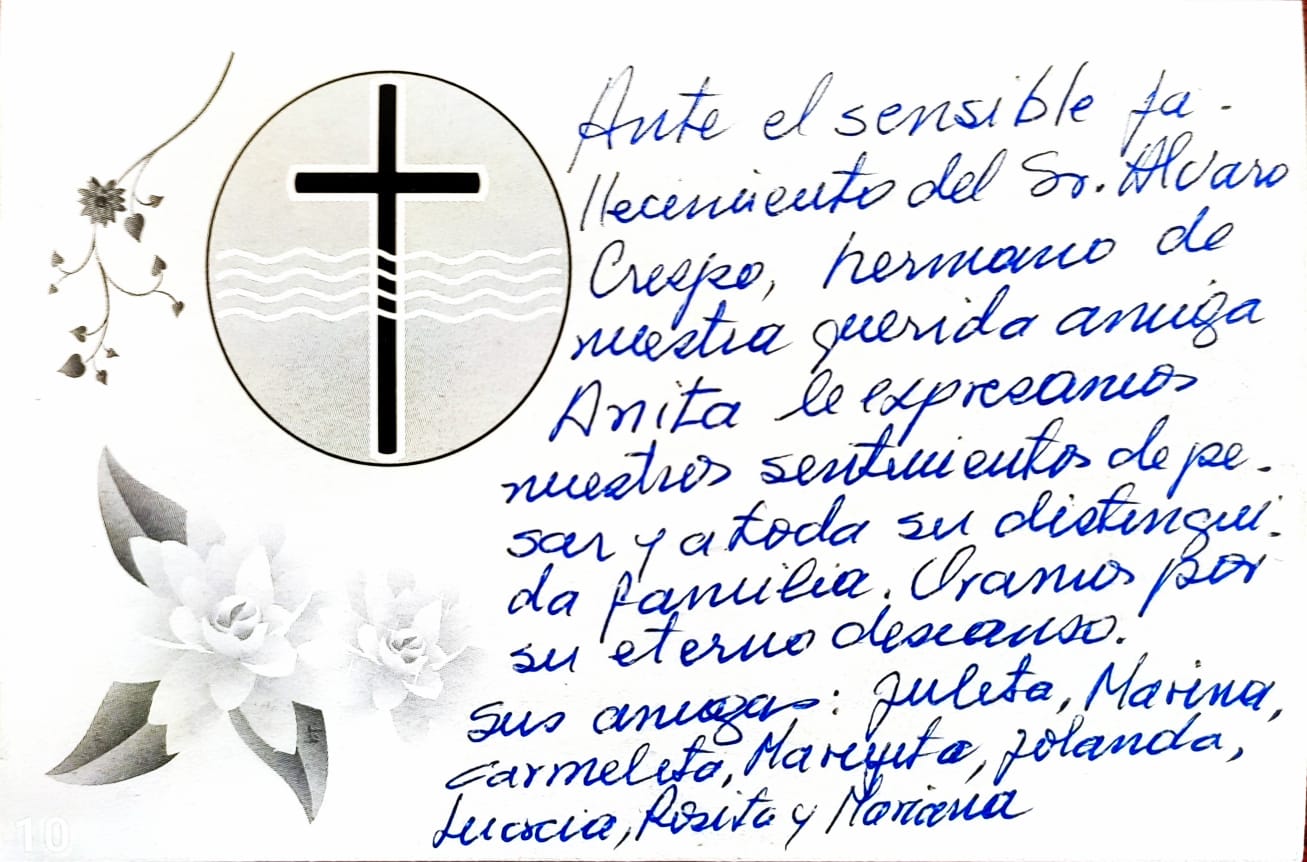 Ante el sensible fa-
llecimiento del Sr. Alvaro
Crespo, hermano de
nuestra querida amiga
Anita le expresamos
nuestros sentimientos de pe-
sar y a toda su distingui-
da familia. Oramos por
su eterno descanso.
Sus amigas: Julieta, Marina,
Carmelita, Mariquita, Yolanda,
Rosita y Mariana
10